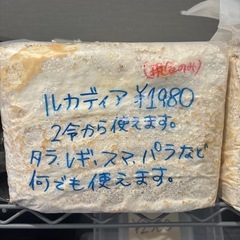 (税込のみ)
ルカディア ¥1980
2令から使えます。
タラ、レギ、スマ、パラなど
何でも使えます。